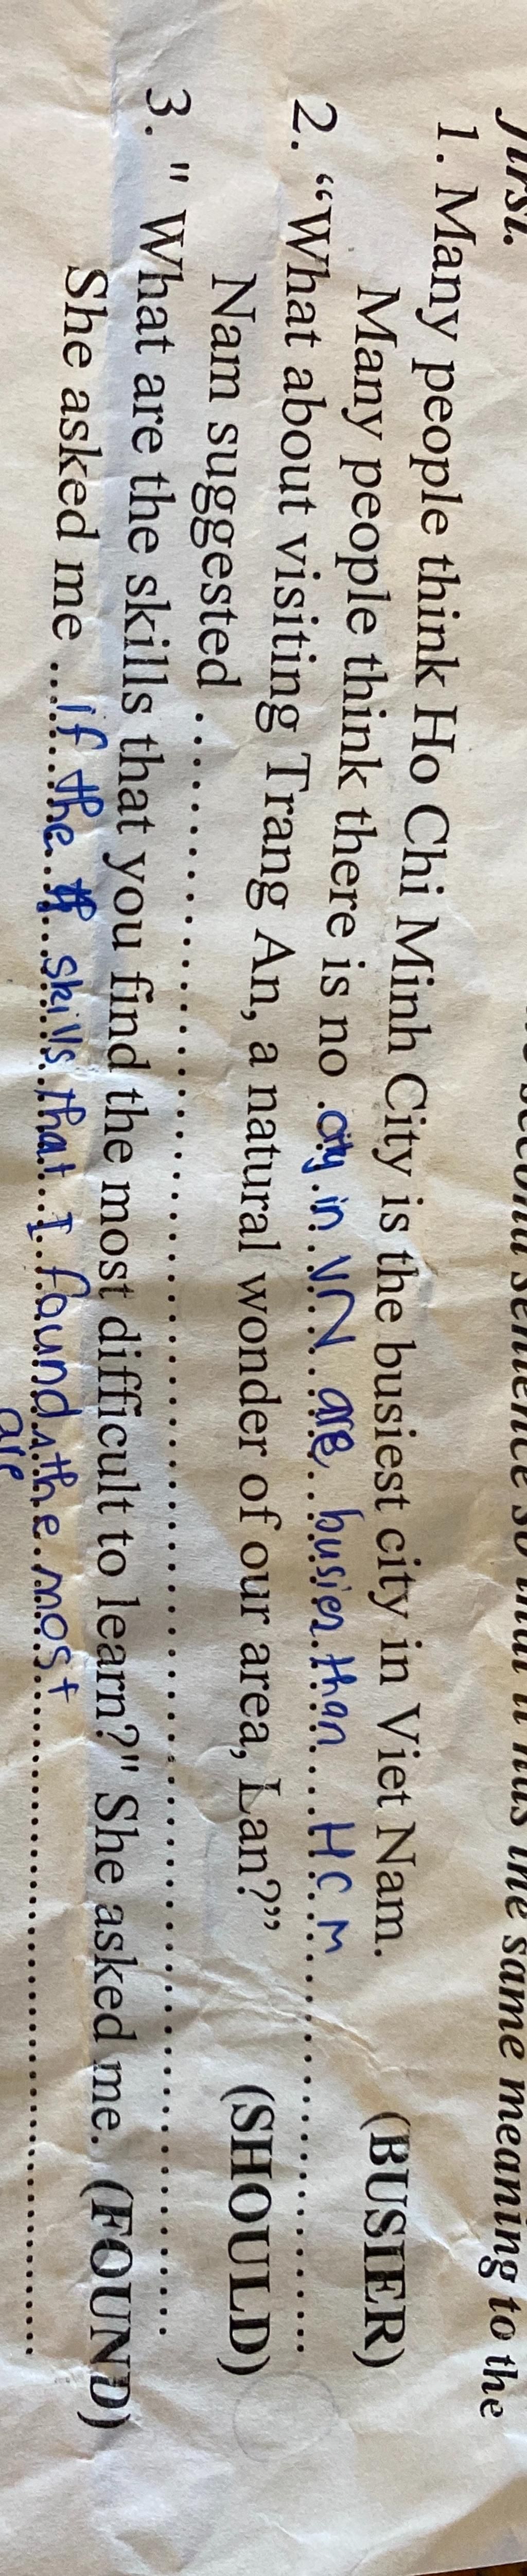 second sentence so that it has the same meaning to the
first.
1. Many people think Ho Chi Minh City is the busiest city in Viet Nam. (BUSIER)
Many people think there is no city in VN are busier than HCM
2. “What about visiting Trang An, a natural wonder of our area, Lan?” (SHOULD)
Nam suggested ........................................................................
3. " What are the skills that you find the most difficult to learn?" She asked me. (FOUND)
She asked me if the skills that I found the most
are